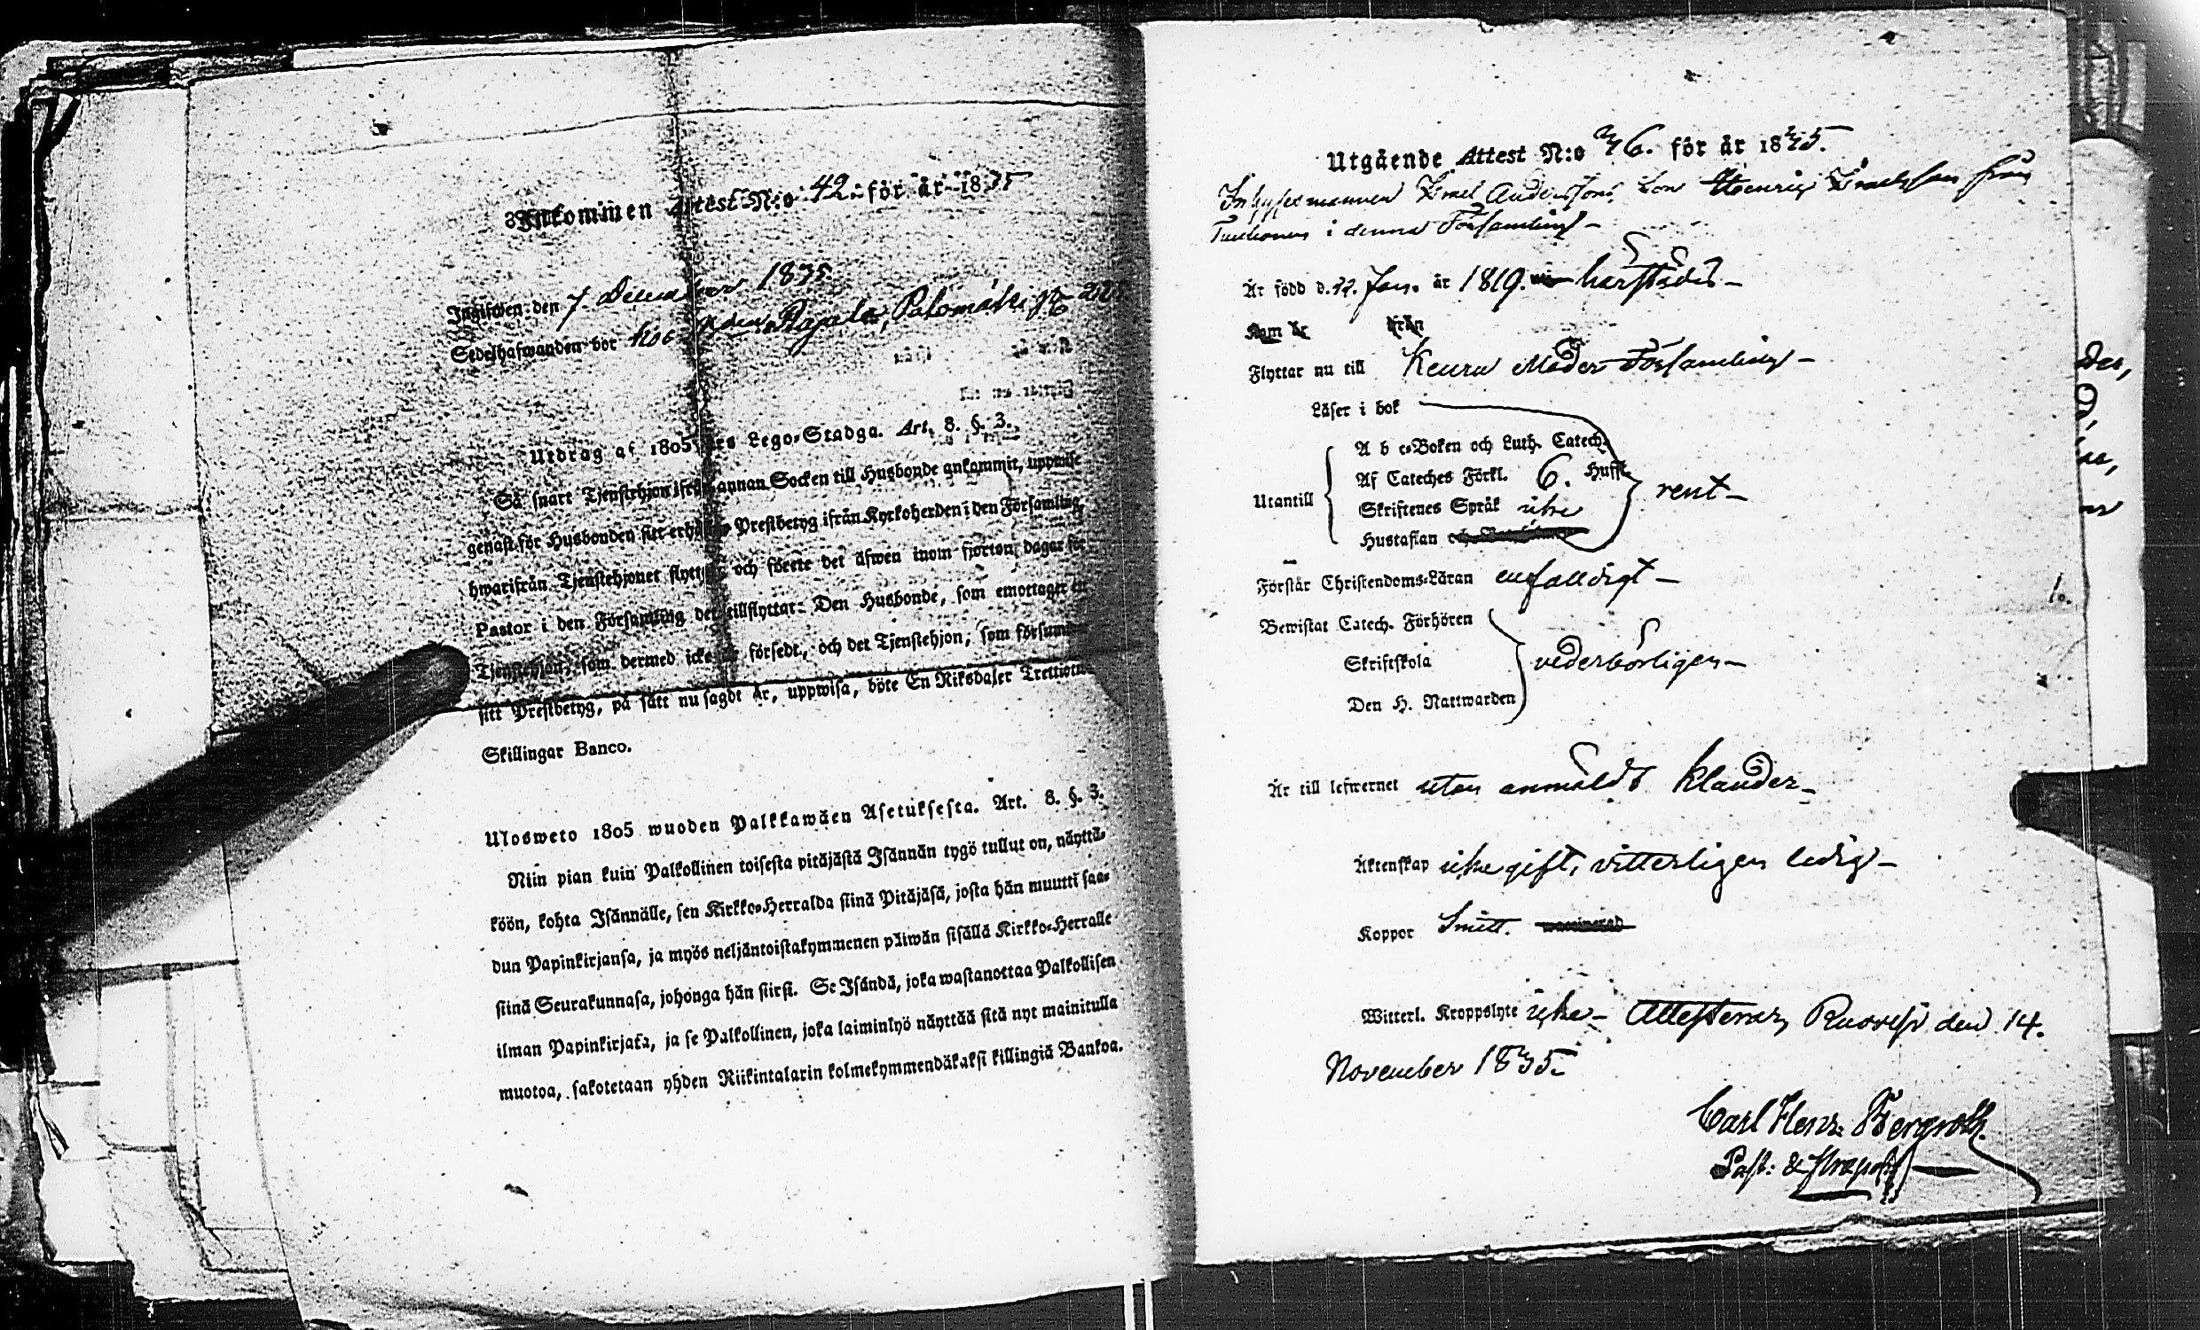 Inkommen Attest N:o 42. för år 1835
Ingifwen den 7. December 1835.
Sedelhafwanden bor hos Rajala, Palomäki
Utdrag af 1805 års Lego-Stadga. Art. 8. §. 3.
Så snart Tjenstehjon ifrån annan Socken till Husbonde ankommit, uppwise
genast för Husbonden sitt erhållna Prestbetyg ifrån Kyrkoherden i den Församling,
hwarifrån Tjenstehjonet flyttat, och förete det äfwen inom fjorton dagar för
Pastor i den Församling det tillflyttar. Den Husbonde, som emottager ett
Tjenstehjon, som dermed icke är försedt, och det Tjenstehjon, som försummar
sitt Prestbetyg, på sätt nu sagdt är, uppwisa, böte En Riksdaler Trettiotwå
Skillingar Banco.
Ulosweto 1805 wuoden Palkkawäen Asetuksesta. Art. 8. §. 3.
Niin pian kuin Palkollinen toisesta pitäjästä Isännän tygö tullut on, näyttä-
köön, kohta Isännälle, sen Kirkko-Herralda siinä Pitäjäsä, josta hän muutti saa-
dun Papinkirjansa, ja myös neljäntoistakymmenen päiwän sisällä Kirkko-Herralle
siinä Seurakunnasa, johonga hän siirsi. Se Isändä, joka wastanottaa Palkollisen
ilman Papinkirjata, ja se Palkollinen, joka laiminlyö näyttää sitä nyt mainitulla
muotoa, sakotetaan yhden Riikintalarin kolmekymmendäkaksi killingiä Bankoa.
Utgående Attest N:o 36. för år 1835.
Inhysesmannen Israel Anderssons Son Henric Israelsson från
i denna Församling –
Är född d. 22. Jan. år 1819. härstädes –
Som är från
Flyttar nu till Keuru Moder Församling –
Läser i bok
A b c-Boken och Luth. Catech.
Af Cateches Förkl. 6. Hufst.
Utantill Skriftenes Språk icke rent –
Hustaflan
Förstår Christendoms-Läran enfalldigt –
Bewistat Catech. Förhören
Skriftskola vederbörligen –
Den H. Nattwarden
Är till lefwernet utan anmäldt klander –
Äktenskap icke gift, vitterligen ledig –
Koppor Smitt. waccinerad
Witterl. Kroppslyte icke – Attesterar, Ruovesi den 14.
November 1835.
Carl Henr. Bergroth.
Past: & Præpos: